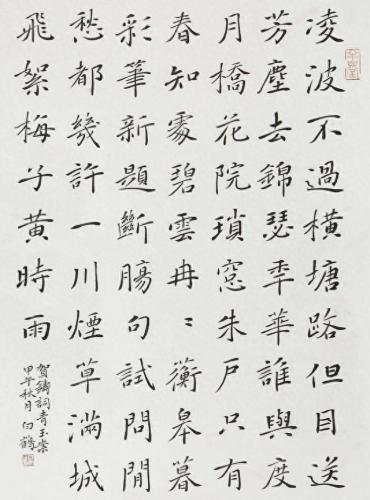 凌波不過橫塘路但目送
芳塵去錦瑟秊華誰與度
月橋花院瑣窓朱戶只有
春知處碧雲冉〻衡皋暮
彩筆新題斷腸句試問閒
愁都幾許一川煙草滿城
飛絮梅子黃時雨
賀鑄詞青玉案
甲午秋月白鶴